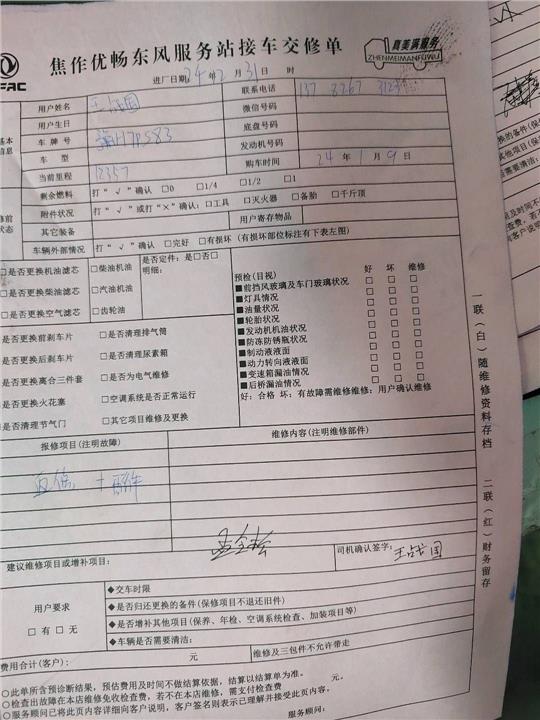 焦作优畅东风服务站接车交修单
真美满服务
ZHENMEIMANFUWU
FAC
进厂日期: 24年2月31日 时
用户姓名 联系电话 137 8267
用户生日 微信号码
车牌号 底盘号码
车型 发动机号码
当前里程 12357 购车时间 24年1月9日
剩余燃料 打“√”确认 □0 □1/4 □1/2 □1
附件状况 打“√”或打“×”确认: □工具 □灭火器 □备胎 □千斤顶
其它装备 用户寄存物品
车辆外部情况 打“√”确认 □完好 □有损坏 (有损坏部位标注有下表左图)
□是否更换机油滤芯 □柴油机油 是否定件: 是□否□
明细:
□是否更换柴油滤芯 □汽油机油
□是否更换空气滤芯 □齿轮油
预检(目视) 好 坏 维修
■前挡风玻璃及车门玻璃状况 □ □ □
■灯具情况 □ □ □
■油量状况 □ □ □
■轮胎状况 □ □ □
■发动机机油状况 □ □ □
■防冻防锈瓶状况 □ □ □
■制动液液面 □ □ □
■动力转向液液面 □ □ □
■变速箱漏油情况 □ □ □
■后桥漏油情况 □ □ □
好: 合格 坏: 有故障需维修维修: 用户确认维修
是否更换前刹车片 □是否清理排气筒
是否更换后刹车片 □是否清理尿素箱
是否更换离合三件套 □是否为电气维修
是否更换火花塞 □空调系统是否正常运行
是否清理节气门 □其它项目维修及更换
报修项目(注明故障) 维修内容(注明维修部件)
建议维修项目或增补项目: 司机确认签字: 王占国
用户要求
□有 □无
◆交车时限
◆是否归还更换的备件(保修项目不退还旧件)
◆是否增补其他项目(保养、年检、空调系统检查、加装项目等)
◆车辆是否需要清洁:
费用合计(客户): 元 维修及三包件不允许带走
○此单所含预诊断结果, 预估费用及时间不做结算依据, 结算以结算单为准。
○检查出故障在本店维修免收检查费, 若不在本店维修, 需支付检查费 元。
○服务顾问已将此页内容详细向客户说明, 客户签名则表示已理解并接受此页内容。
服务顾问:
一联(白)随维修资料存档
二联(红)财务留存